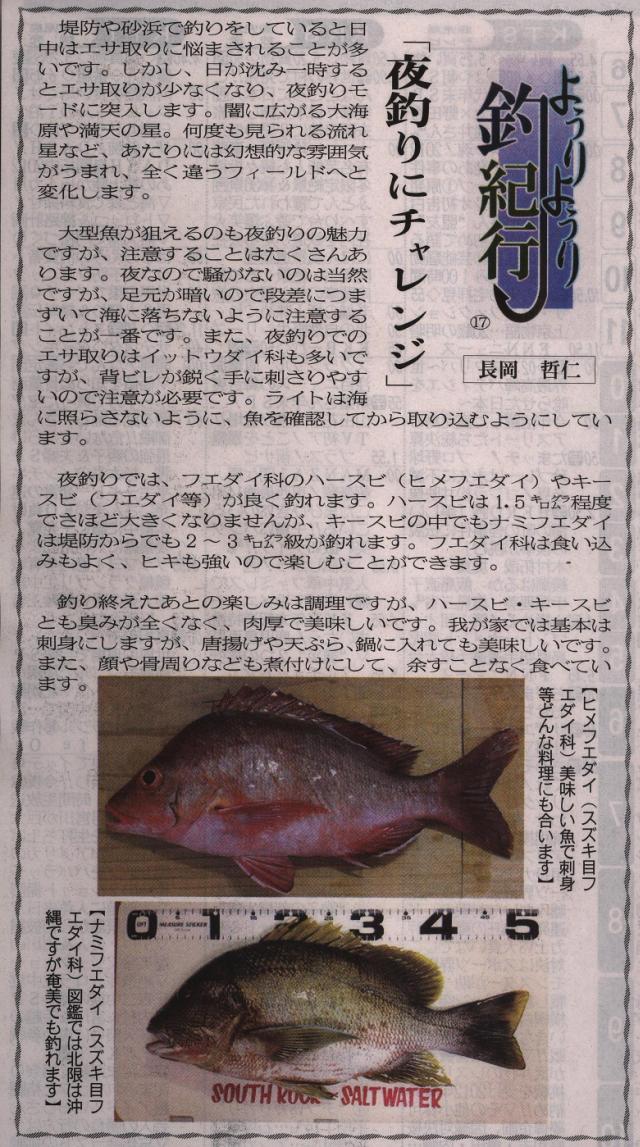 ようりようり
釣紀行
⑰
長岡 哲仁
「夜釣りにチャレンジ」
堤防や砂浜で釣りをしていると日
中はエサ取りに悩まされることが多
いです。しかし、日が沈み一時する
とエサ取りが少なくなり、夜釣りモ
ードに突入します。闇に広がる大海
原や満天の星。何度も見られる流れ
星など、あたりには幻想的な雰囲気
がうまれ、全く違うフィールドへと
変化します。
大型魚が狙えるのも夜釣りの魅力
ですが、注意することはたくさんあ
ります。夜なので騒がないのは当然
ですが、足元が暗いので段差につま
ずいて海に落ちないように注意する
ことが一番です。また、夜釣りでの
エサ取りはイットウダイ科も多いで
すが、背ビレが鋭く手に刺さりやす
いので注意が必要です。ライトは海
に照らさないように、魚を確認してから取り込むようにしてい
ます。
夜釣りでは、フエダイ科のハースビ（ヒメフエダイ）やキー
スビ（フエダイ等）が良く釣れます。ハースビは1.5㌔㌘程度
でさほど大きくなりませんが、キースビの中でもナミフエダイ
は堤防からでも２～３㌔㌘級が釣れます。フエダイ科は食い込
みもよく、ヒキも強いので楽しむことができます。
釣り終えたあとの楽しみは調理ですが、ハースビ・キースビ
とも臭みが全くなく、肉厚で美味しいです。我が家では基本は
刺身にしますが、唐揚げや天ぷら、鍋に入れても美味しいです。
また、顔や骨周りなども煮付けにして、余すことなく食べてい
ます。
【ヒメフエダイ（スズキ目フ
エダイ科）美味しい魚で刺身
等どんな料理にも合います】
【ナミフエダイ（スズキ目フ
エダイ科）図鑑では北限は沖
縄ですが奄美でも釣れます】
0 1 2 3 4 5
MEASURE STICKER
SOUTH ROCK SALTWATER